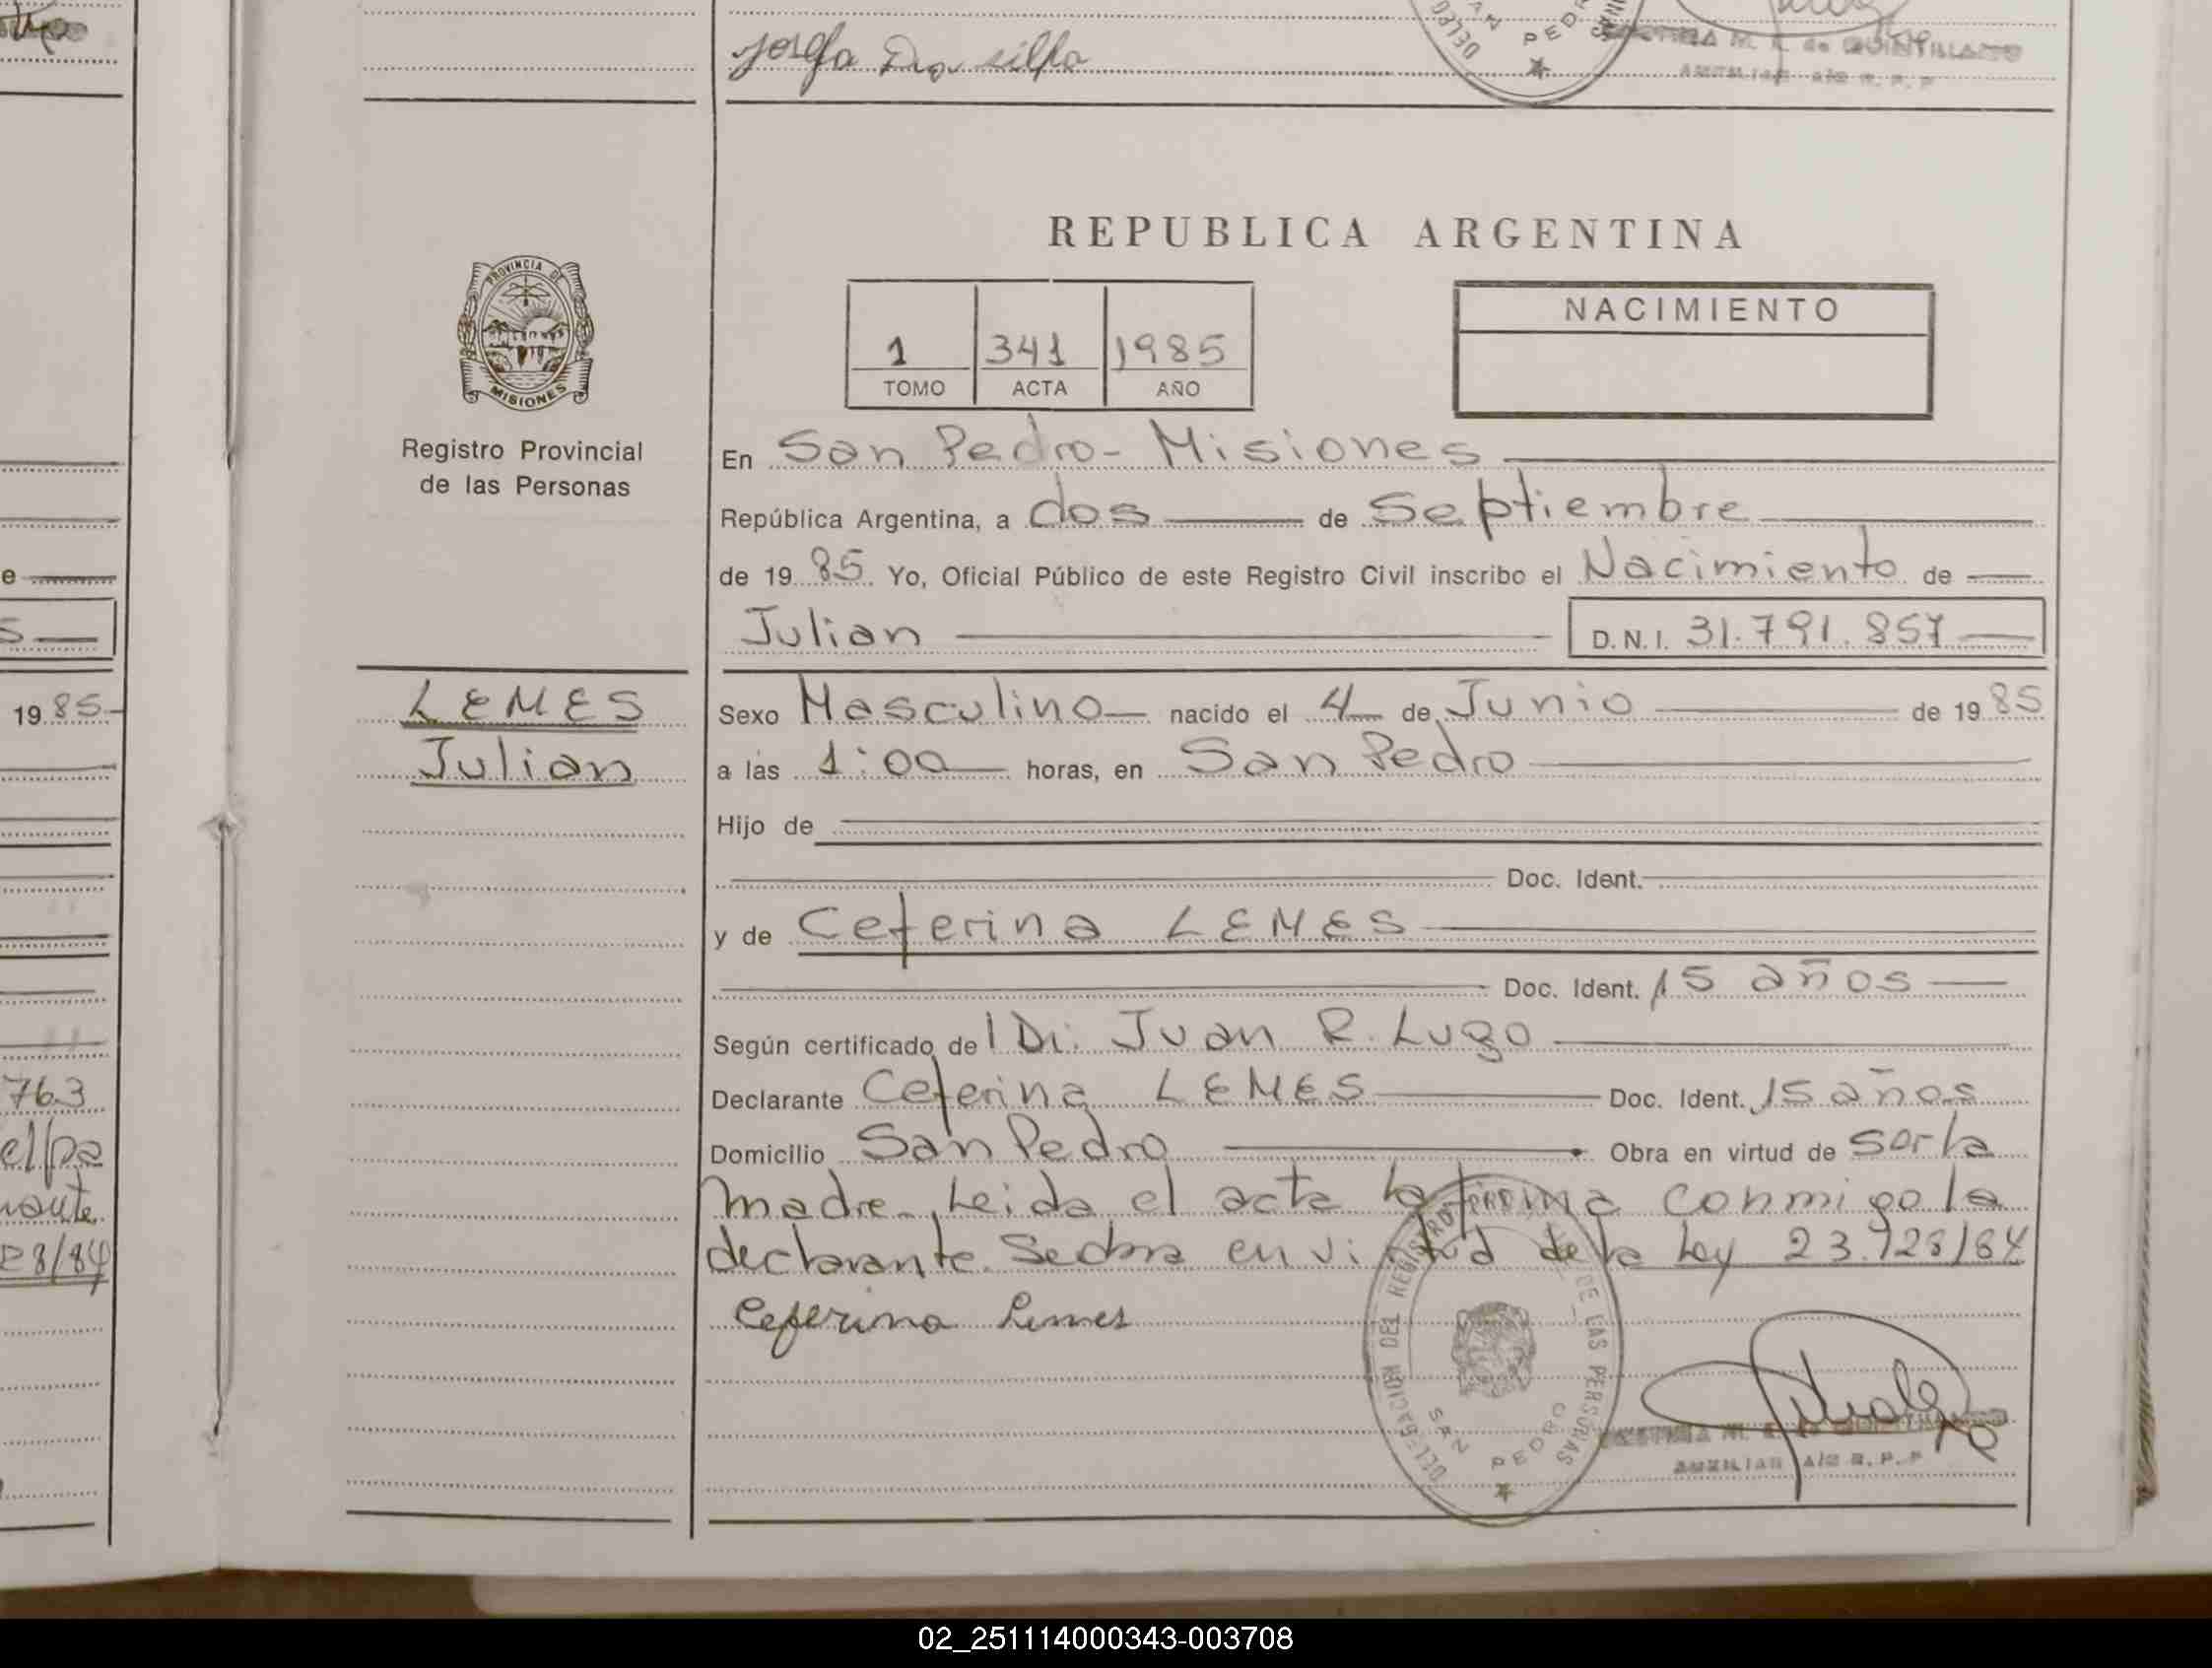 Josefa Da silva
SAN PEDR
DELEG
M. E. de QUINTILLANO
AUXILIAR A/C R. P. P
REPUBLICA ARGENTINA
PROVINCIA DE
MISIONES
Registro Provincial
de las Personas
1 341 1985
TOMO ACTA AÑO
NACIMIENTO
En San Pedro - Misiones
República Argentina, a dos de Septiembre
de 1985 Yo, Oficial Público de este Registro Civil inscribo el Nacimiento de
Julian D.N.I. 31.791.857
LEMES
Julian
Sexo Masculino nacido el 4 de Junio de 1985
a las 1:00 horas, en San Pedro
Hijo de
Doc. Ident.
y de Ceferina LEMES
Doc. Ident. 15 años
Según certificado de l Dr. Juan R. Lugo
Declarante Ceferina LEMES Doc. Ident. 15 años
Domicilio San Pedro Obra en virtud de ser la
madre. Leida el acta la firma conmigo la
declarante. Se labra en virtud de la Ley 23.128/84
Ceferina Lemes
DELEGACION DEL REGISTRO DE LAS PERSONAS
SAN PEDRO
M. E. de QUINTILLANO
AUXILIAR A/C R. P. P
e
5
1985
763
28/84
02_251114000343-003708